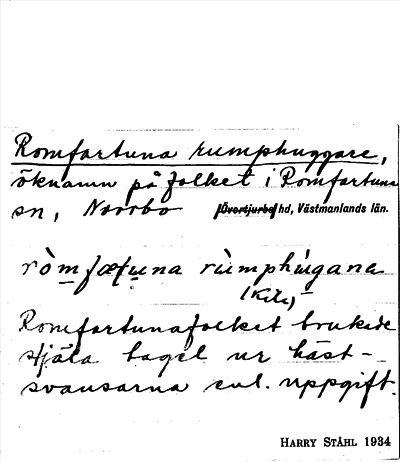 Romfartuna rumphuggare,
öknamn på folket i Romfartuna
sn, Norrbo [Övertjurbo] hd, Västmanlands län.
ròmfæt̲u̲na rùmphúgana
Romfartunafolket brukade
stjäla tagel ur häst-
svansarna enl. uppgift.
HARRY STÅHL 1934